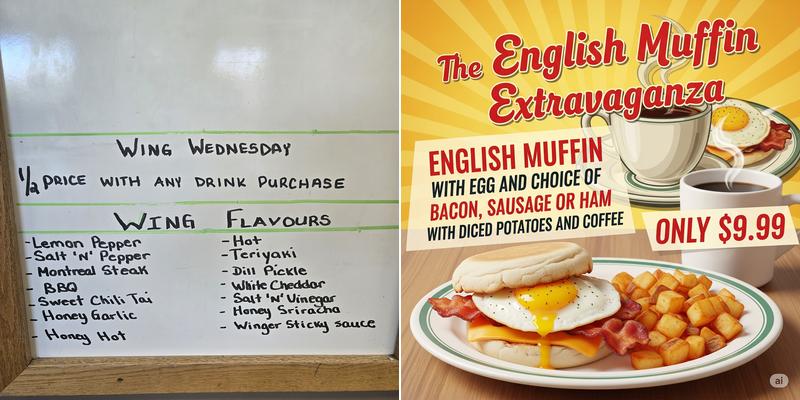 WING WEDNESDAY
1/2 PRICE WITH ANY DRINK PURCHASE
WING FLAVOURS
- Lemon Pepper
- Salt 'N' Pepper
- Montreal Steak
- BBQ
- Sweet Chili Tai
- Honey Garlic
- Honey Hot
- Hot
- Teriyaki
- Dill Pickle
- White Cheddar
- Salt 'N' Vinegar
- Honey Sriracha
- Winger Sticky sauce
The English Muffin
Extravaganza
ENGLISH MUFFIN
WITH EGG AND CHOICE OF
BACON, SAUSAGE OR HAM
WITH DICED POTATOES AND COFFEE
ONLY $9.99
ai